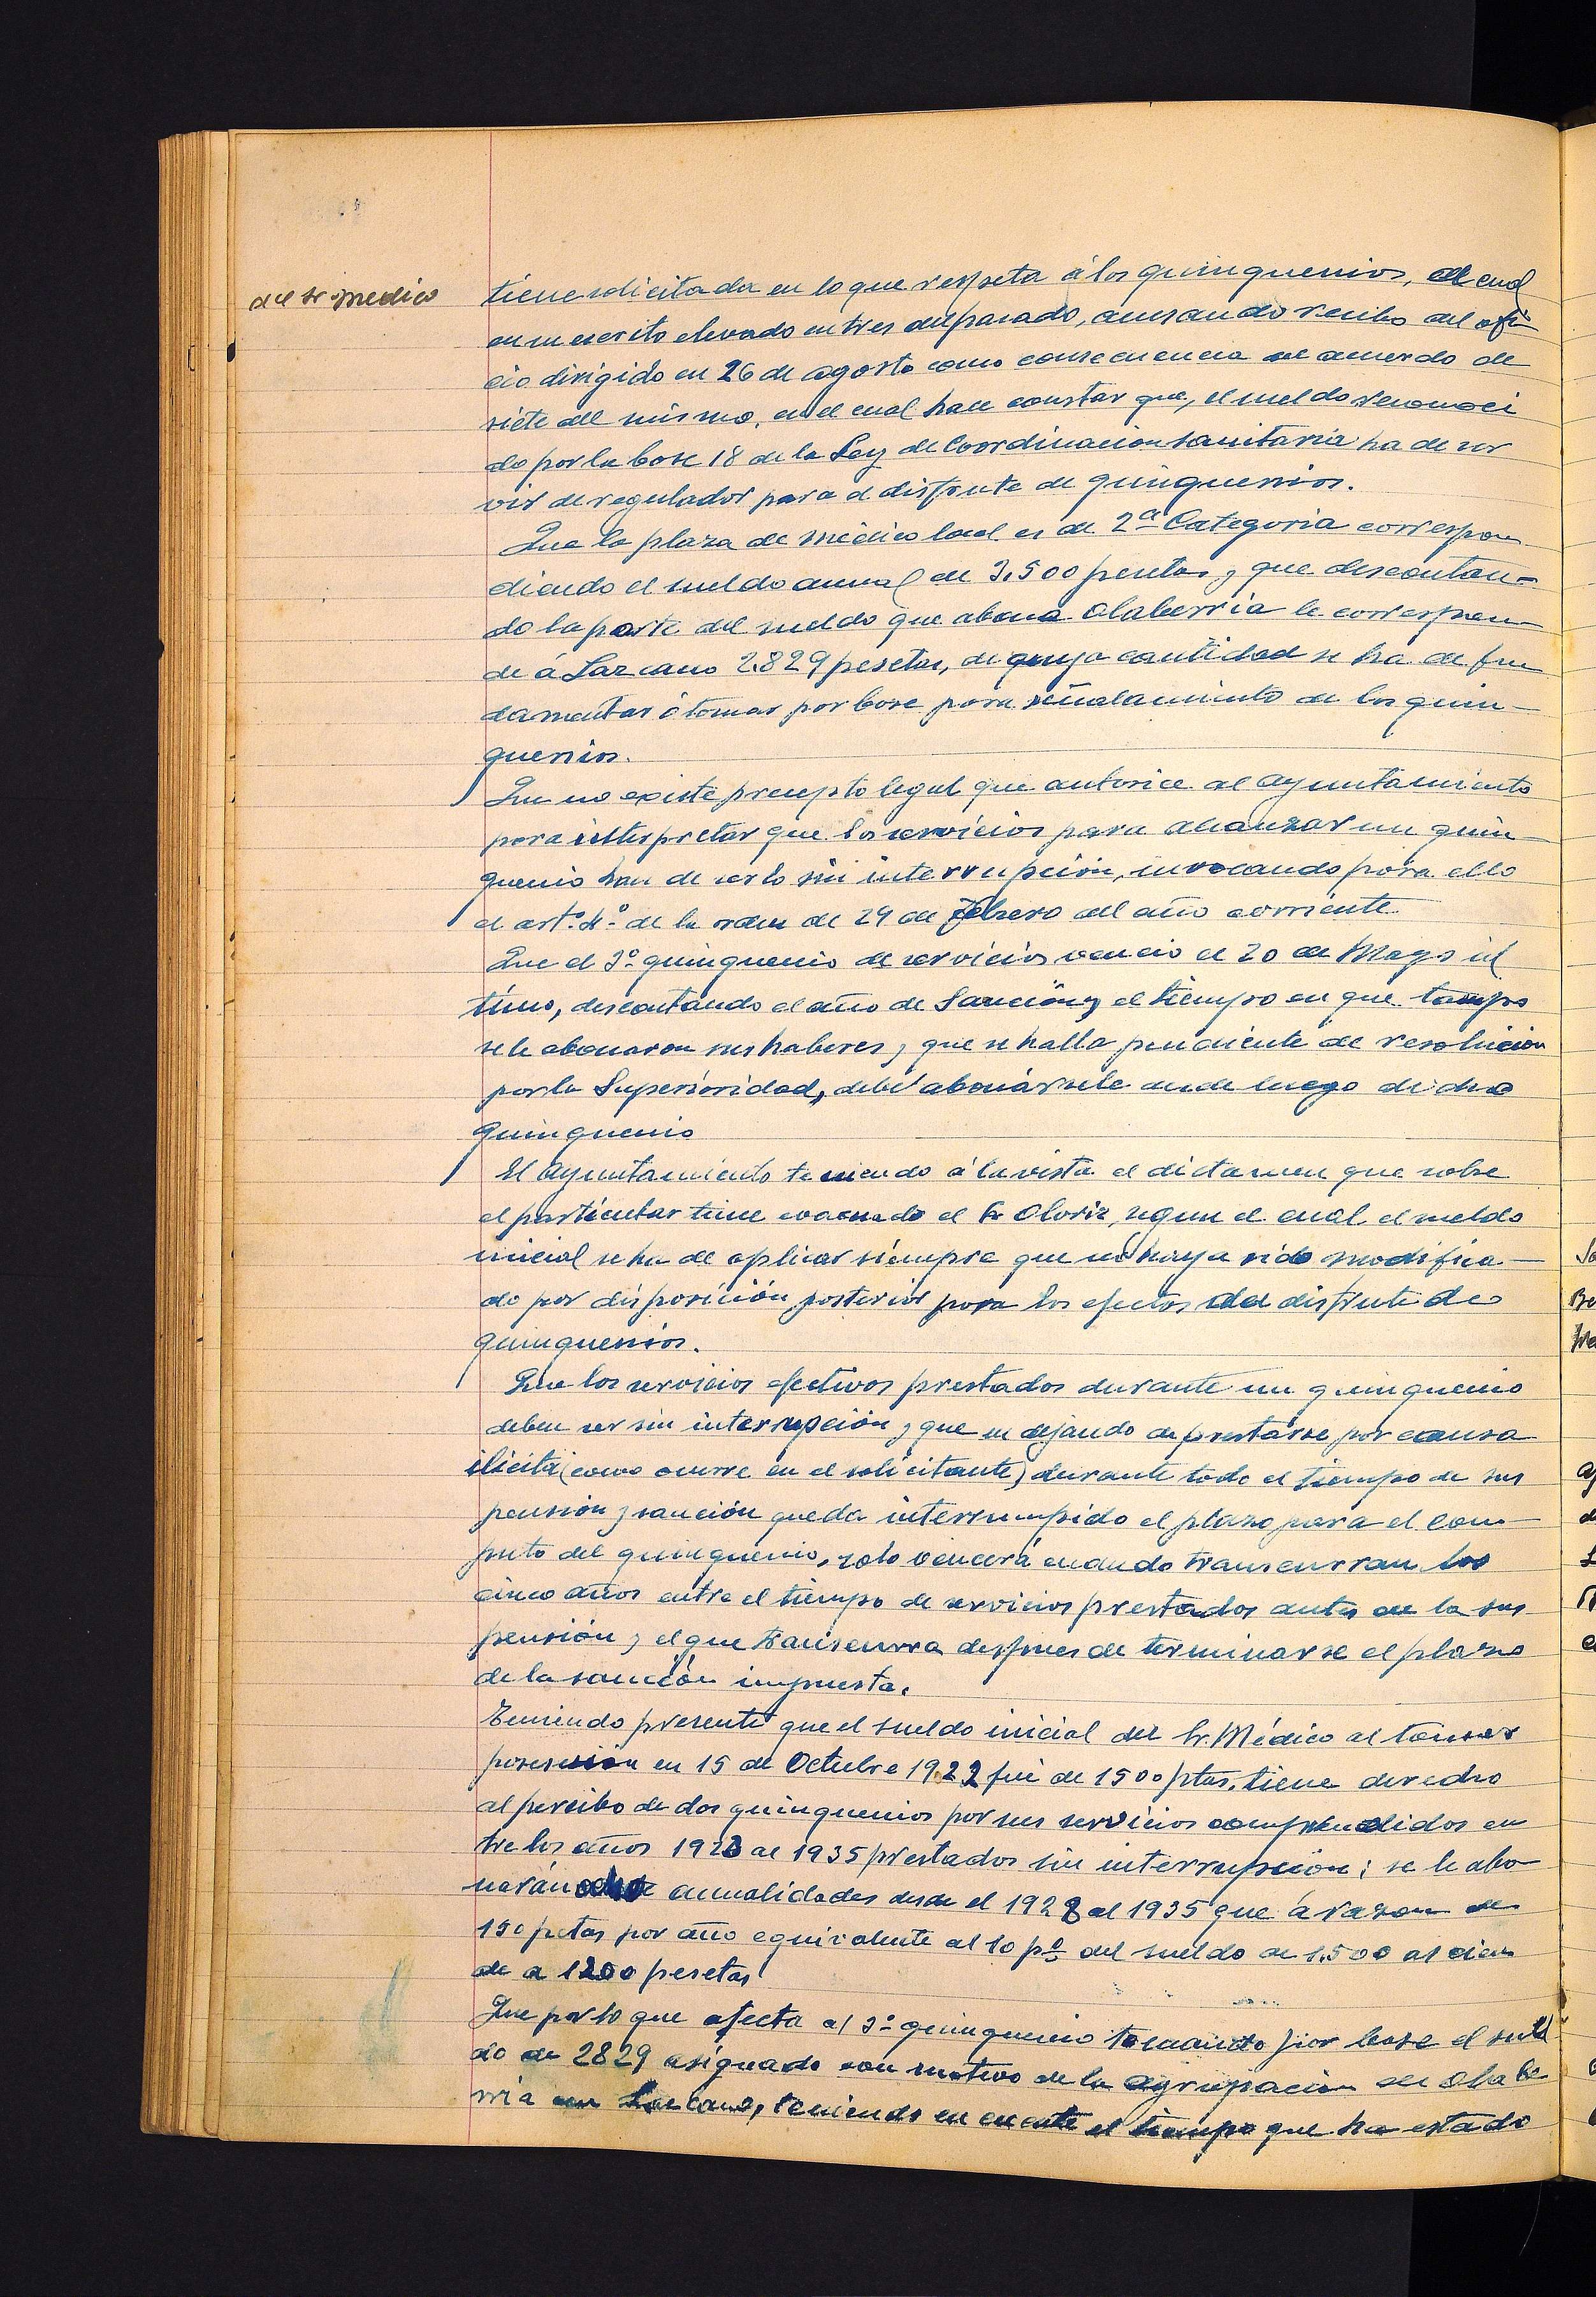 del Sr. medico
tiene solicitada en lo que respeta á los quinquenios, del cual
en su escrito elevado en tres del pasado, acusando recibo del ofi
cio dirigido en 26 de agosto como consecuencia del acuerdo de
siete del mismo, en el cual hace constar que, el sueldo reconoci
do por la base 18 de la Ley de Coordinacion Sanitaria ha de ser
vir de regulador para el disfrute de quinquenios.
Que la plaza de médico local es de 2ª Categoria correspon
diendo el sueldo anual de 3.500 pesetas y que descontan-
do la parte del sueldo que abona Olaberria le correspon-
de á Lazcano 2.829 pesetas, de cuya cantidad se ha de fun
damentar ó tomar por base para señalamiento de los quin-
quenios.
Que no existe precepto legal que autorice al Ayuntamiento
para interpretar que los servicios para alcanzar un quin-
quenio han de serlo sin interrupción, invocando para ello
el artº. 4º. de la orden de 29 de febrero del año corriente.
Que el 3º quinquenio de servicios vencio el 20 de Mayo úl
timo, descontando el año de Sanción y el tiempo en que tampo
se le abonaron sus haberes, y que se halla pendiente de resolución
por la Superioridad, debe abonársele desde luego dicho
quinquenio
El Ayuntamiento teniendo á la vista el dictamen que sobre
el particular tiene evacuado el Sr Oloriz, segun el cual el sueldo
inicial se ha de aplicar siempre que no haya sido modifica-
do por disposición posterior para los efectos del disfrute de
quinquenios.
Que los servicios efectivos prestados durante un quinquenio
deben ser sin interrupción y que en dejando de prestarse por causa
ilicita (como ocurre en el solicitante) durante todo el tiempo de sus
pensión y sanción queda interrumpido el plazo para el com-
puto del quinquenio, solo vencerá cuando transcurran los
cinco años entre el tiempo de servicios prestados antes de la sus
pensión y el que transcurra despues de terminarse el plazo
de la sanción impuesta.
Teniendo presente que el sueldo inicial del Sr. Médico al tomar
posesión en 15 de Octubre 1922 fué de 1500 ptas. tiene derecho
al percibo de dos quinquenios por sus servicios comprendidos en
tre los años 1923 al 1935 prestados sin interrupción; se le abo
narán ocho anualidades desde el 1928 al 1935 que á razon de
150 pstas por año equivalente al 10 pº del sueldo de 1.500 ascien
de a 1200 pesetas
Que por lo que afecta al 3º quinquenio tomando por base el suel
do de 2829 asignado con motivo de la agrupacion de Olabe
rria con Lazcano, teniendo en cuenta el tiempo que ha estado